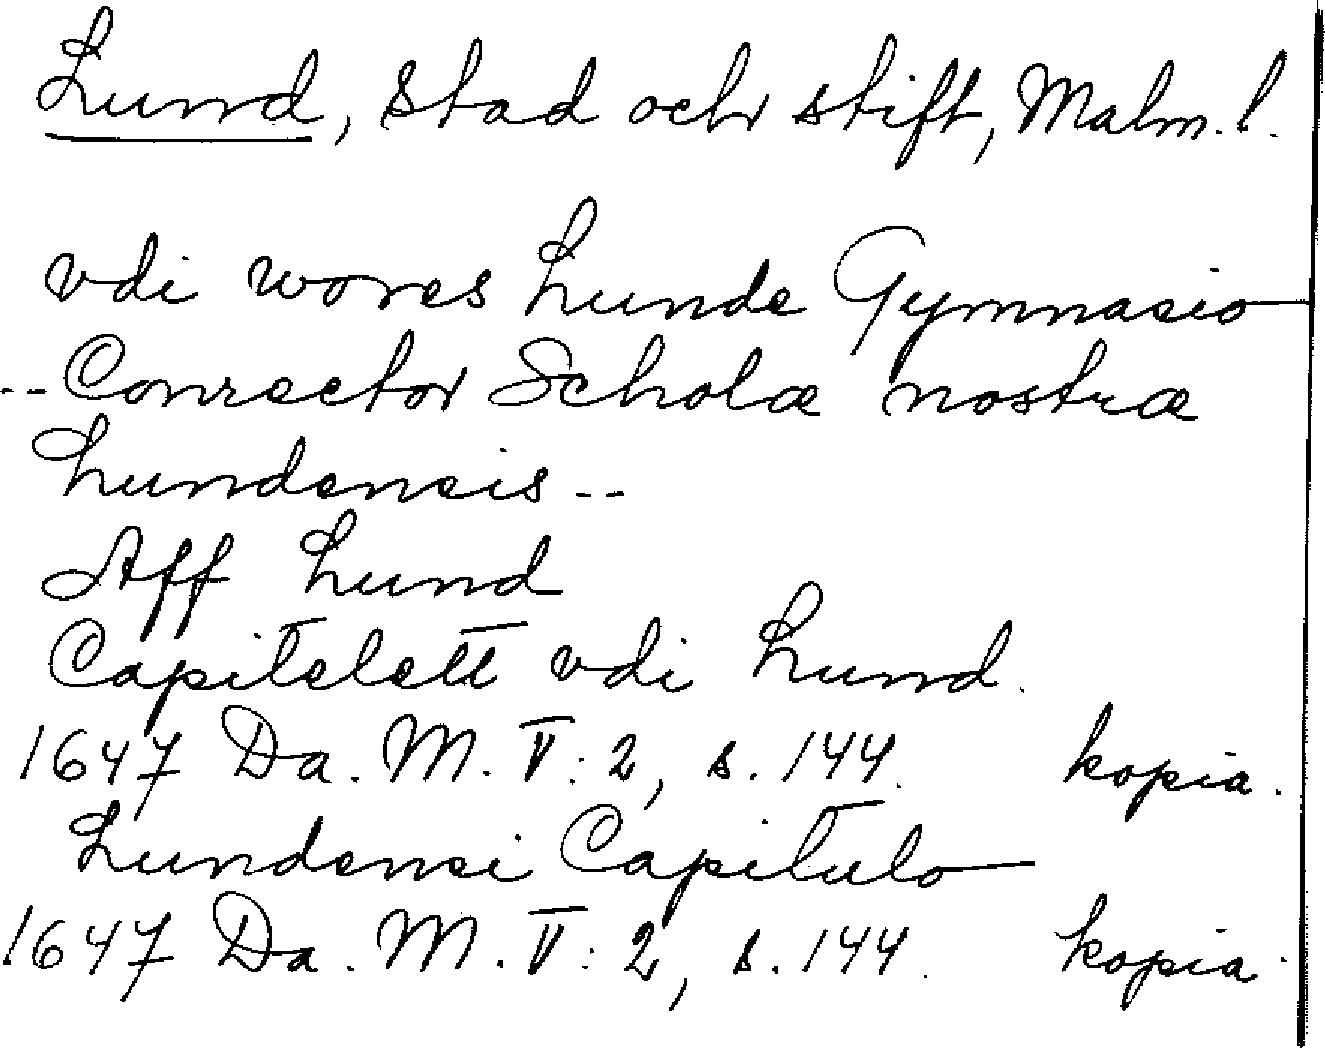 Lund, stad och stift, Malm. l.
vdi wores Lunde Gymnasio
-- Conrector Scholæ nostræ
Lundensis --
Aff Lund
Capitelett vdi Lund.
1647 Da. M. V: 2, s. 144. kopia.
Lundensi Capitulo
1647 Da. M. V: 2, s. 144. kopia.